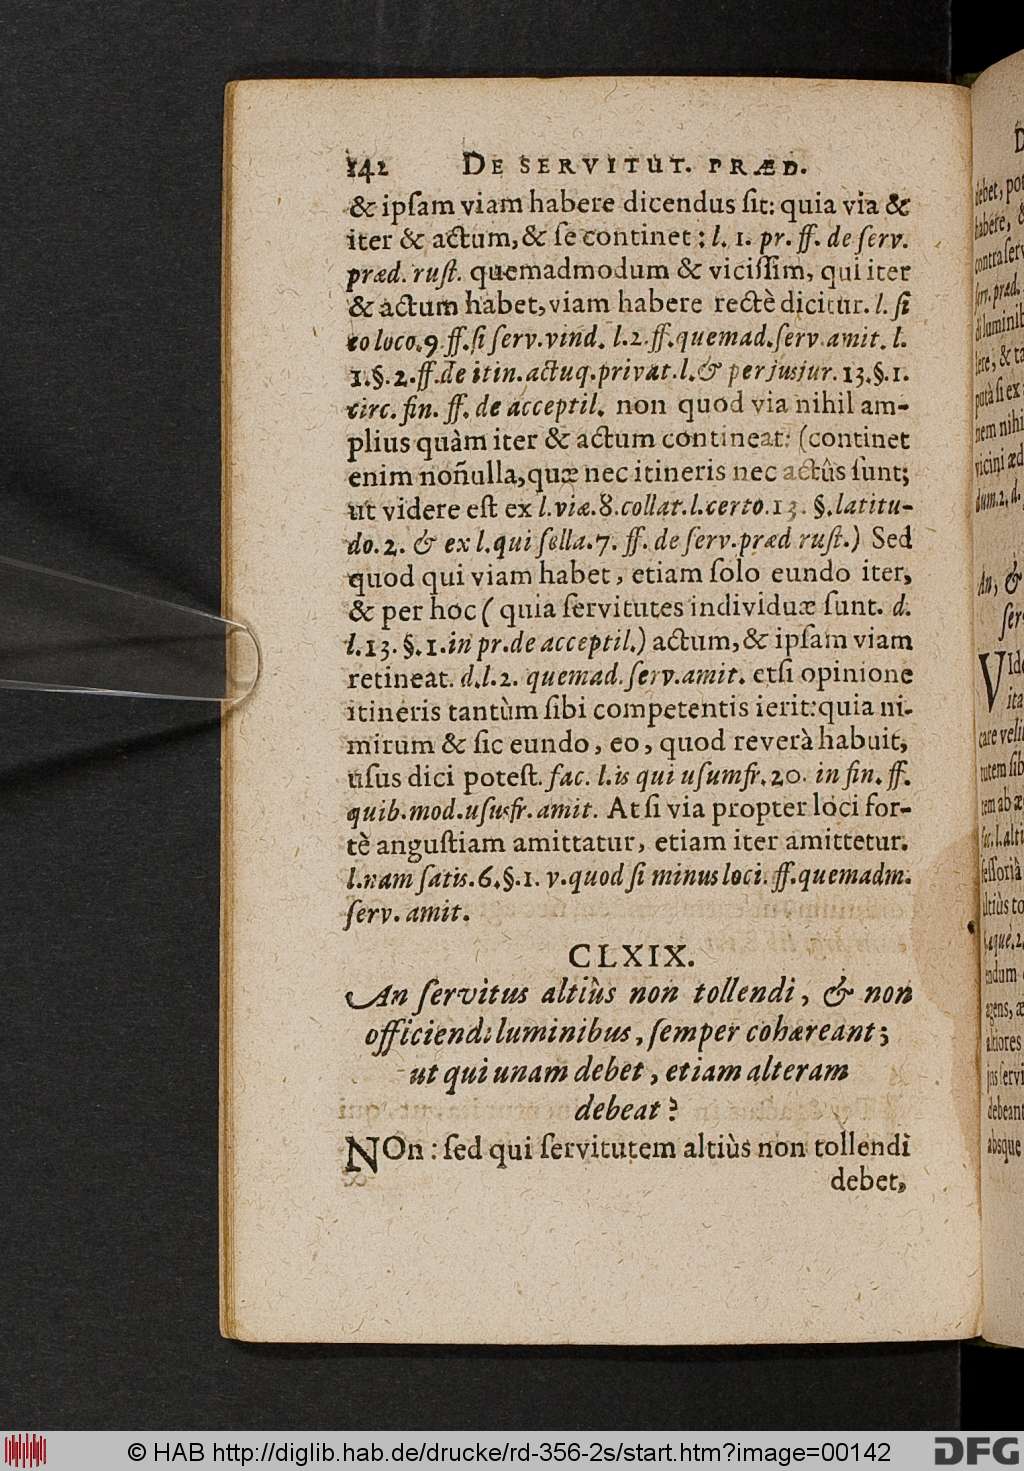 142 DE SERVITUT. PRÆD.
& ipſam viam habere dicendus ſit: quia via &
iter & actum, & ſe continet: l. 1. pr. ff. de ſerv.
præd. ruſt. quemadmodum & viciſſim, qui iter
& actum habet, viam habere rectè dicitur. l. ſi
eo loco. 9 ff. ſi ſerv. vind. l. 2. ff. quemad. ſerv. amit. l.
1. §. 2. ff. de itin. actuq. privat. l. & per jusjur. 13. §. 1.
circ. fin. ff. de acceptil. non quod via nihil am-
plius quàm iter & actum contineat: (continet
enim non̄ulla, quæ nec itineris nec actûs ſunt;
ut videre eſt ex l. viæ. 8. collat. l. certo. 13. §. latitu-
do. 2. & ex l. qui ſella. 7. ff. de ſerv. præd ruſt.) Sed
quod qui viam habet, etiam ſolo eundo iter,
& per hoc (quia ſervitutes individuæ ſunt. d.
l. 13. §. 1. in pr. de acceptil.) actum, & ipſam viam
retineat. d. l. 2. quemad. ſerv. amit. etſi opinione
itineris tantùm ſibi competentis ierit: quia ni-
mirum & ſic eundo, eo, quod reverà habuit,
uſus dici poteſt. fac. l. is qui uſumfr. 20. in fin. ff.
quib. mod. uſusfr. amit. At ſi via propter loci for-
tè anguſtiam amittatur, etiam iter amittetur.
l. nam ſatis. 6. §. 1. v. quod ſi minus loci. ff. quemadm.
ſerv. amit.
CLXIX.
An ſervitus altiùs non tollendi, & non
officiendi luminibus, ſemper cohæreant;
ut qui unam debet, etiam alteram
debeat?
NOn: ſed qui ſervitutem altiùs non tollendi
debet,
debet, pot
habere, &
contra ſerv
ſerv. præd.
di luminib
lere, & ta
potà ſi ex
nem nihi
vicini æd
dum. 2. d.
An, &
ſer
VIde
ita
care veli
tutem ſib
tem ab æ
fac. l. alti
ſeſſoriâ
altiùs to
agens, æ
altiores
jus ſervi
debeant
absque
© HAB http://diglib.hab.de/drucke/rd-356-2s/start.htm?image=00142
DFG